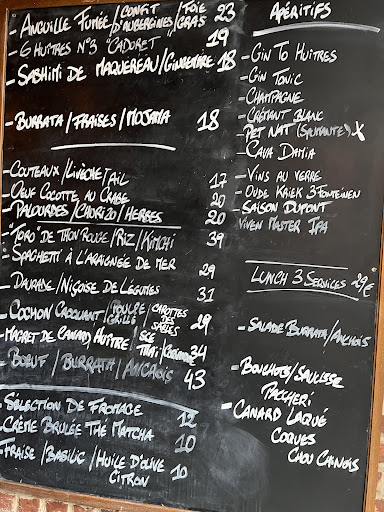 - ANGUILLE FUMÉE / CONFIT D'AUBERGINES / FOIE GRAS 23
- 6 HUITRES N°3 "CADORET" 19
- SASHIMI DE MAQUEREAU / GINGEMBRE 18
- BURRATA / FRAISES / MOJAMA 18
- COUTEAUX / LIVÈCHE / AIL 17
- OEUF COCOTTE AU CRABE 20
- PALOURDES / CHORIZO / HERBES 20
- "TORO" DE THON ROUGE / RIZ / KIMCHI 39
- SPAGHETTI À L'ARAIGNÉE DE MER 29
- DAURADE / NIÇOISE DE LÉGUMES 31
- COCHON CROQUANT / POULPE GRILLÉ / CAROTTES DES SABLES 29
- MAGRET DE CANARD / HUITRE / SCE THAÏ / 34
- BOEUF / BURRATA / ANCHOIS 43
- SÉLECTION DE FROMAGE 12
- CRÈME BRULÉE THÉ MATCHA 10
- FRAISE / BASILIC / HUILE D'OLIVE CITRON 10
APÉRITIFS
- GIN TO HUITRES
- GIN TONIC
- CHAMPAGNE
- CRÉMANT BLANC
- PET NAT (SAUVANTE) X
- CAVA DAMIA
- VINS AU VERRE
- OUDE KRIEK 3 FONTEINEN
- SAISON DUPONT
VIVEN MASTER IPA
LUNCH 3 SERVICES 29€
- SALADE BURRATA / ANCHOIS
- BOUCHOTS / SAUCISSE
PACCHERI
- CANARD LAQUÉ
COQUES
CHOU CHINOIS